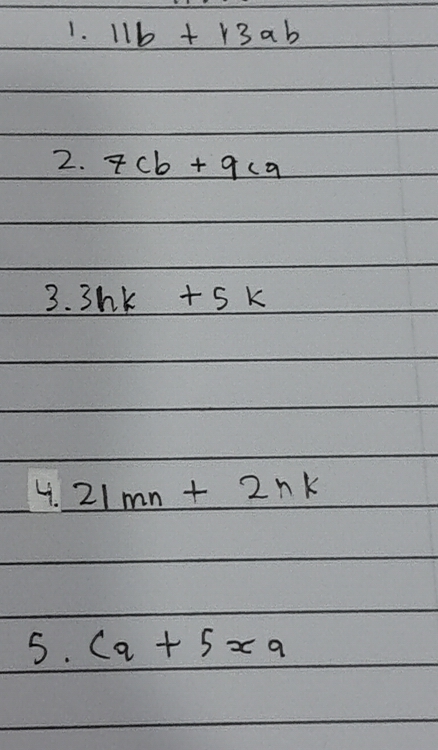 1. 11b + 13ab
2. 7cb + 9ca
3. 3hk + 5k
4. 21mn + 2nk
5. Ca + 5xa